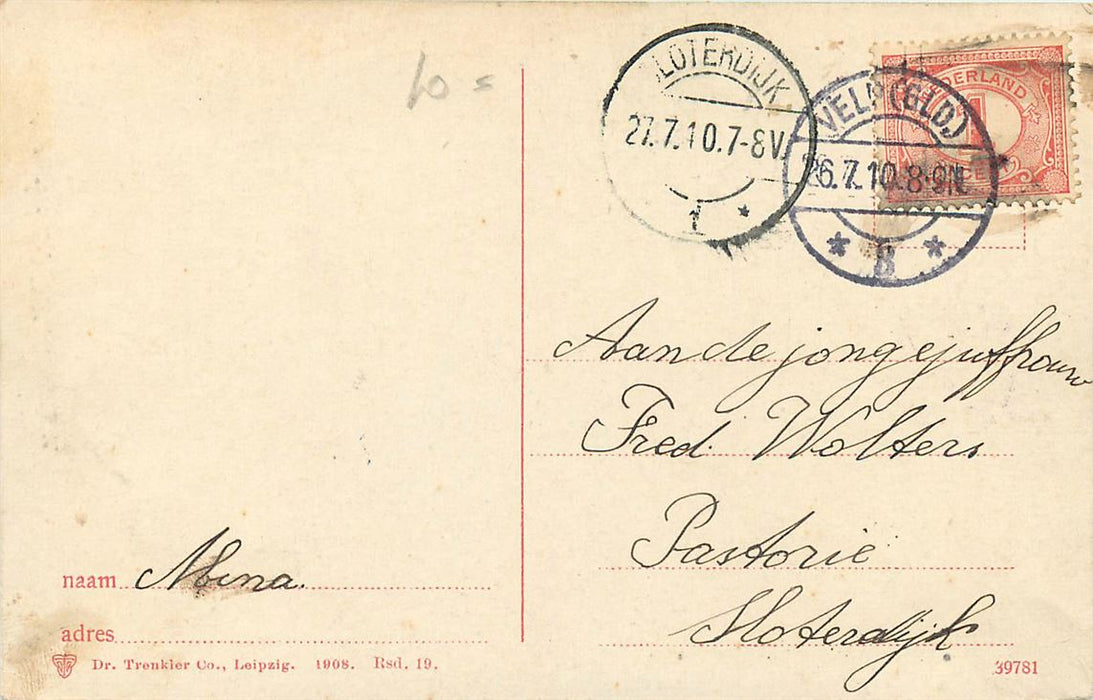 10 =
SLOTERDIJK.
27.7.10.7-8V.
1 *
NEDERLAND
1
CENT
VELP (GLD.)
26.7.10.8-9N.
* B *
Aan de jongejuffrouw
Fred. Wolters
Pastorie
Sloterdijk
naam Mina.
adres
Dr. Trenkler Co., Leipzig. 1908. Rsd. 19.
39781